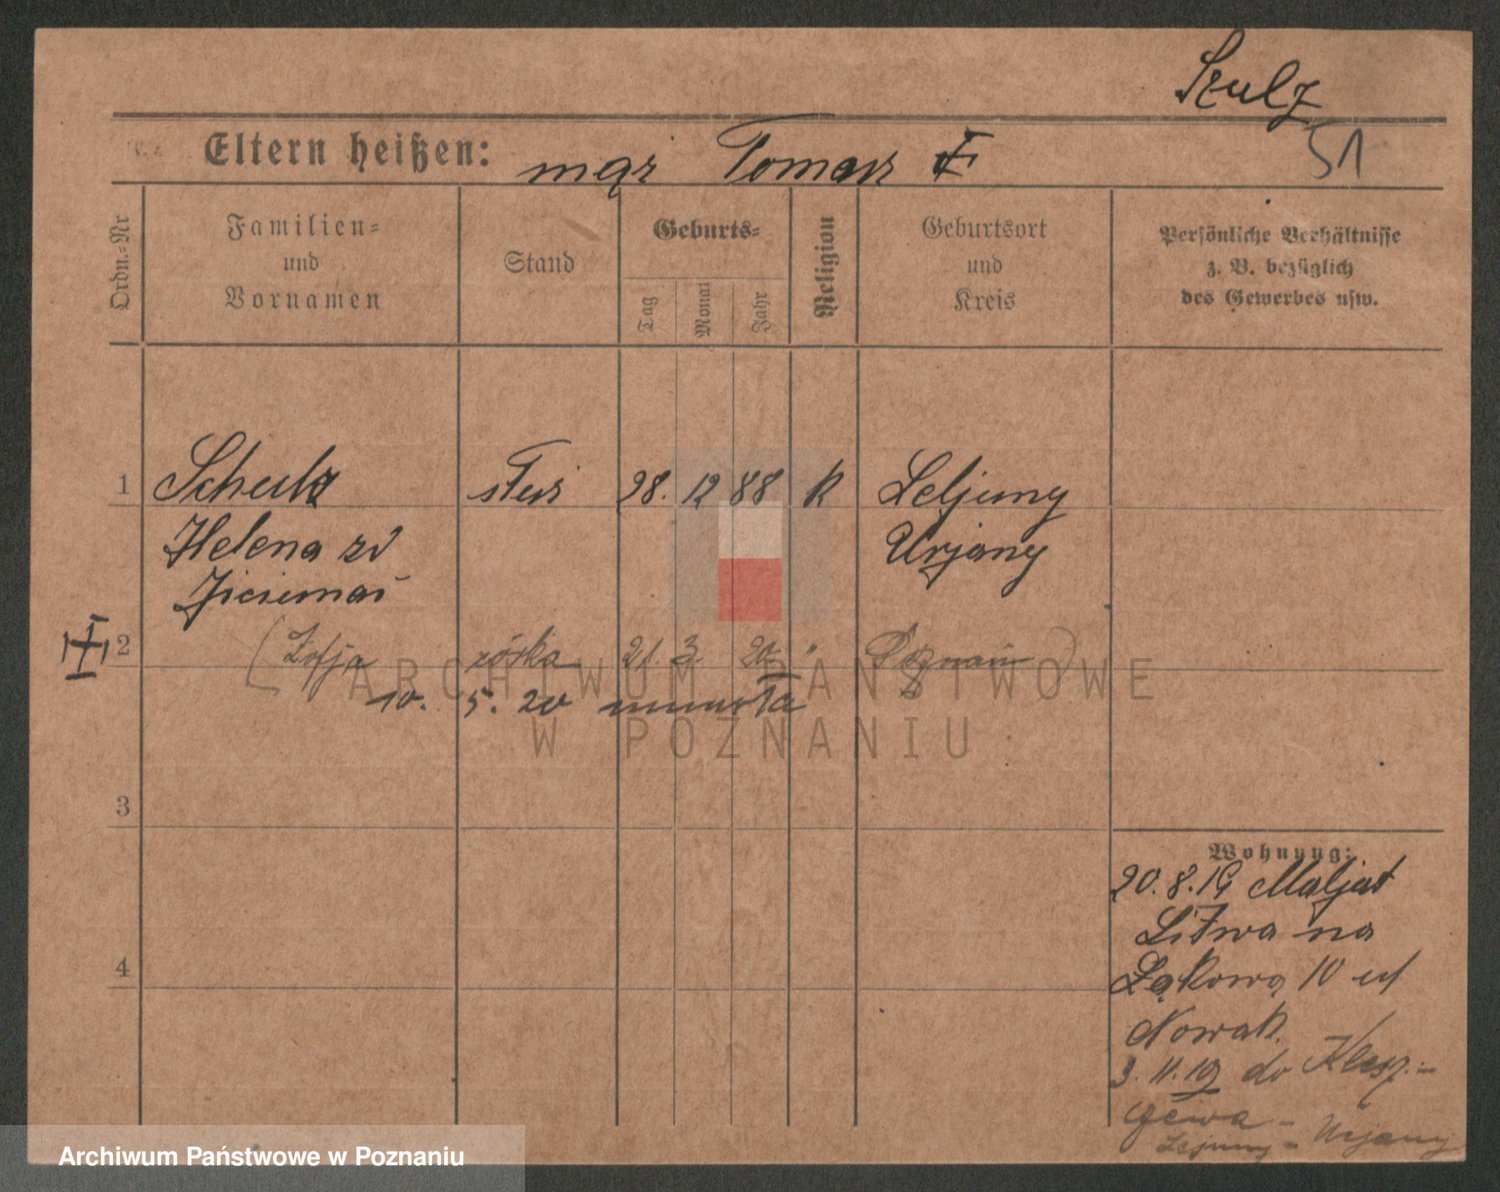 Szulz
51
Eltern heißen: mąż Tomasz
Ordn.-Nr
Familien-
und
Vornamen
Stand
Geburts-
Tag
Monat
Jahr
Religion
Geburtsort
und
Kreis
Persönliche Verhältnisse
z. B. bezüglich
des Gewerbes usw.
1 Schulz 28. 12 88 k Leljuny
Helena Urjany
2 (Zofja córka 21. 3. 20. " Poznań)
10. 5. 20 umarła
ARCHIWUM PAŃSTWOWE
W POZNANIU
3
4
Wohnung:
20. 8. 19 Maljat
Litwa na
Łąkową 10 ud
Nowak.
3. 11. 19 do
Lejuny - Urjany
Archiwum Państwowe w Poznaniu